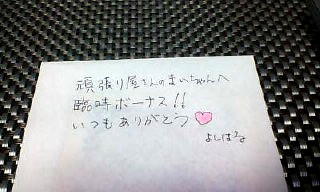 頑張り屋さんのまいちゃんへ
臨時ボーナス!!
いつもありがとう♡
よしはる